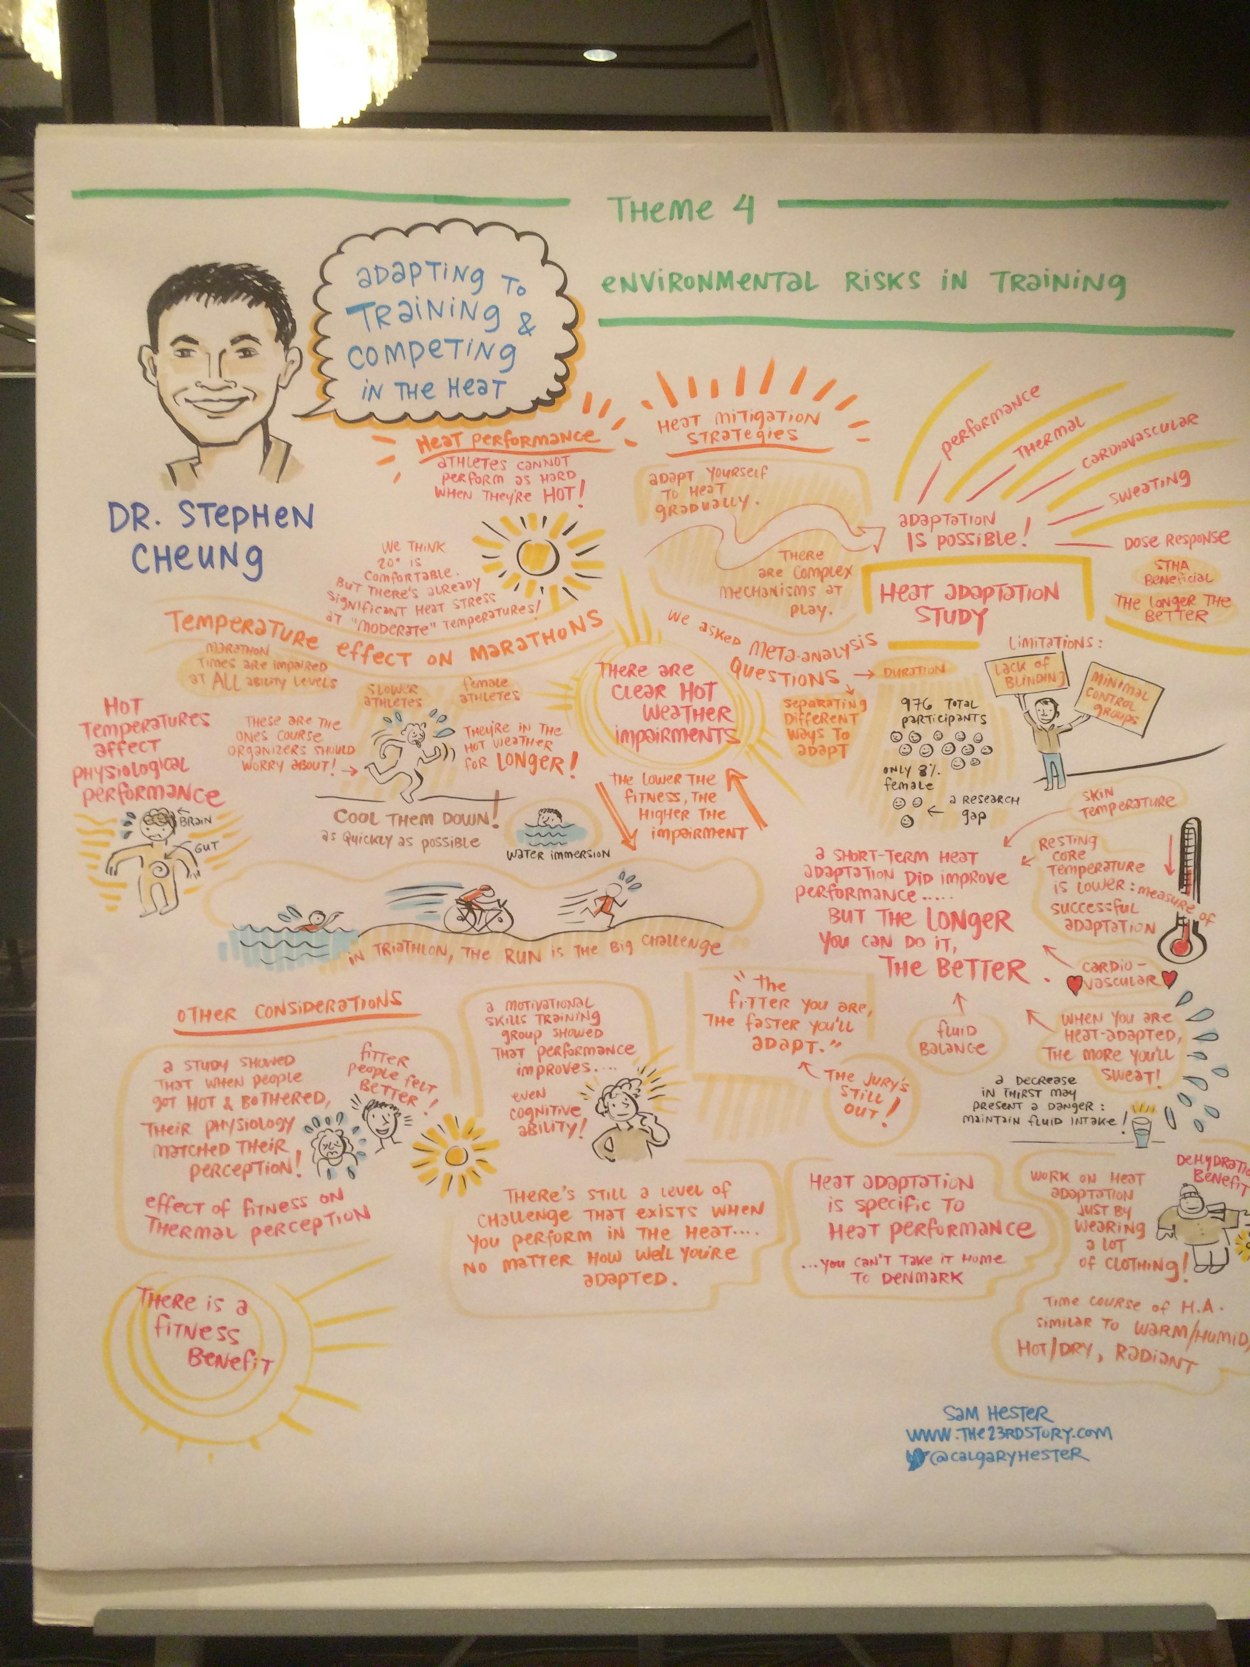 THEME 4
ENVIRONMENTAL RISKS IN TRAINING
ADAPTING TO
TRAINING &
COMPETING
IN THE HEAT
DR. STEPHEN
CHEUNG
HEAT PERFORMANCE
ATHLETES CANNOT
PERFORM AS HARD
WHEN THEY'RE HOT!
WE THINK
20° IS
COMFORTABLE.
BUT THERE'S ALREADY
SIGNIFICANT HEAT STRESS
AT "MODERATE" TEMPERATURES!
HEAT MITIGATION
STRATEGIES
ADAPT YOURSELF
TO HEAT
GRADUALLY.
THERE
ARE COMPLEX
MECHANISMS AT
PLAY.
PERFORMANCE
THERMAL
CARDIOVASCULAR
SWEATING
DOSE RESPONSE
STHA
BENEFICIAL
THE LONGER THE
BETTER
ADAPTATION
IS POSSIBLE!
HEAT ADAPTATION
STUDY
TEMPERATURE EFFECT ON MARATHONS
MARATHON
TIMES ARE IMPAIRED
AT ALL ABILITY LEVELS
SLOWER
ATHLETES
FEMALE
ATHLETES
THESE ARE THE
ONES COURSE
ORGANIZERS SHOULD
WORRY ABOUT!
THEY'RE IN THE
HOT WEATHER
FOR LONGER!
COOL THEM DOWN!
AS QUICKLY AS POSSIBLE
WATER IMMERSION
HOT
TEMPERATURES
AFFECT
PHYSIOLOGICAL
PERFORMANCE
BRAIN
GUT
THERE ARE
CLEAR HOT
WEATHER
IMPAIRMENTS
THE LOWER THE
FITNESS, THE
HIGHER THE
IMPAIRMENT
IN TRIATHLON, THE RUN IS THE BIG CHALLENGE
WE ASKED META-ANALYSIS
QUESTIONS
DURATION
SEPARATING
DIFFERENT
WAYS TO
ADAPT
976 TOTAL
PARTICIPANTS
ONLY 8%
FEMALE
A RESEARCH
GAP
LIMITATIONS:
LACK OF
BLINDING
MINIMAL
CONTROL
GROUPS
A SHORT-TERM HEAT
ADAPTATION DID IMPROVE
PERFORMANCE.....
BUT THE LONGER
YOU CAN DO IT,
THE BETTER.
SKIN
TEMPERATURE
RESTING
CORE
TEMPERATURE
IS LOWER: MEASURE OF
SUCCESSFUL
ADAPTATION
CARDIO-
VASCULAR
FLUID
BALANCE
WHEN YOU ARE
HEAT-ADAPTED,
THE MORE YOU'LL
SWEAT!
A DECREASE
IN THIRST MAY
PRESENT A DANGER:
MAINTAIN FLUID INTAKE!
OTHER CONSIDERATIONS
A STUDY SHOWED
THAT WHEN PEOPLE
GOT HOT & BOTHERED,
THEIR PHYSIOLOGY
MATCHED THEIR
PERCEPTION!
FITTER
PEOPLE FELT
BETTER!
EFFECT OF FITNESS ON
THERMAL PERCEPTION
A MOTIVATIONAL
SKILLS TRAINING
GROUP SHOWED
THAT PERFORMANCE
IMPROVES....
EVEN
COGNITIVE
ABILITY!
"THE
FITTER YOU ARE,
THE FASTER YOU'LL
ADAPT."
THE JURY'S
STILL
OUT!
THERE'S STILL A LEVEL OF
CHALLENGE THAT EXISTS WHEN
YOU PERFORM IN THE HEAT....
NO MATTER HOW WELL YOU'RE
ADAPTED.
HEAT ADAPTATION
IS SPECIFIC TO
HEAT PERFORMANCE
...YOU CAN'T TAKE IT HOME
TO DENMARK
WORK ON HEAT
ADAPTATION
JUST BY
WEARING
A LOT
OF CLOTHING!
BENEFIT
TIME COURSE OF H.A.
SIMILAR TO WARM/HUMID,
HOT/DRY, RADIANT
THERE IS A
FITNESS
BENEFIT
SAM HESTER
WWW.THE23RDSTORY.COM
@CALGARYHESTER